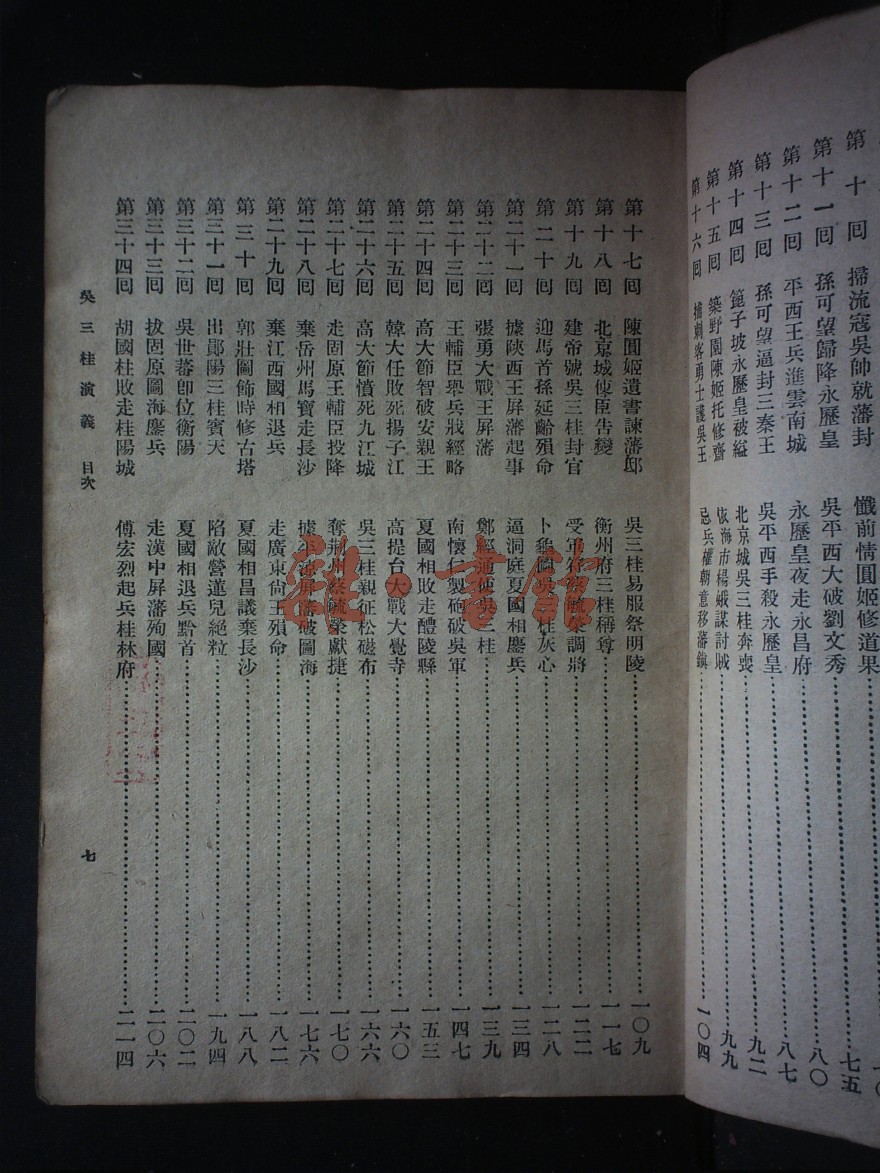 第十回　掃流寇吳帥就藩封　懺前情圓姬修道果
第十一回　孫可望歸降永歷皇　吳平西大破劉文秀……七五
第十二回　平西王兵進雲南城　永歷皇夜走永昌府……八〇
第十三回　孫可望逼封三秦王　吳平西手殺永歷皇……八七
第十四回　篦子坡永歷皇被縊　北京城吳三桂奔喪……九二
第十五回　築野園陳姬托修齋　依海市楊娥謀討賊……九九
第十六回　捕刺客勇士護吳王　忌兵權朝意移藩鎭……一〇四
第十七回　陳圓姬遺書諫藩邸　吳三桂易服祭明陵……一〇九
第十八回　北京城使臣吿變　衡州府三桂稱尊……一一七
第十九回　建帝號吳三桂封官　受軍符蔡毓榮調將……一二二
第二十回　迎馬首孫延齡殞命　卜龜圖吳三桂灰心……一二八
第二十一回　據陝西王屛藩起事　逼洞庭夏國相鏖兵……一三四
第二十二回　張勇大戰王屛藩　鄭經通使吳三桂……一三九
第二十三回　王輔臣舉兵戕經略　南懷仁製砲破吳軍……一四七
第二十四回　高大節智破安親王　夏國相敗走醴陵縣……一五三
第二十五回　韓大任敗死揚子江　高提台大戰大覺寺……一六〇
第二十六回　高大節憤死九江城　吳三桂親征松磁布……一六六
第二十七回　走固原王輔臣投降　奪荆州蔡毓榮獻捷……一七〇
第二十八回　棄岳州馬寶走長沙　據平涼屛藩破圖海……一七六
第二十九回　棄江西國相退兵　走廣東尙王殞命……一八二
第三十回　郭壯圖飾時修古塔　夏國相昌議棄長沙……一八八
第三十一回　出鄖陽三桂賓天　陷敵營蓮兒絕粒……一九四
第三十二回　吳世蕃卽位衡陽　夏國相退兵黔首……二〇二
第三十三回　拔固原圖海鏖兵　走漢中屛藩殉國……二〇六
第三十四回　胡國柱敗走桂陽城　傅宏烈起兵桂林府……二一四
吳三桂演義　目次　七